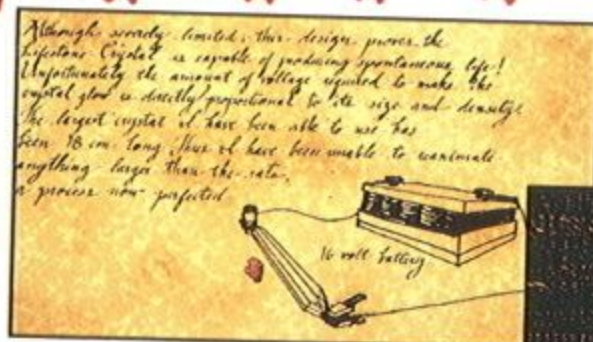 Although severely limited, this design proves the
Lifestone Crystal is capable of producing spontaneous life!
Unfortunately the amount of voltage required to make the
crystal glow is directly proportional to its size and density.
The largest crystal I have been able to use has
been 18 cm long. Thus I have been unable to reanimate
anything larger than the rats,
a process now perfected
16 volt battery